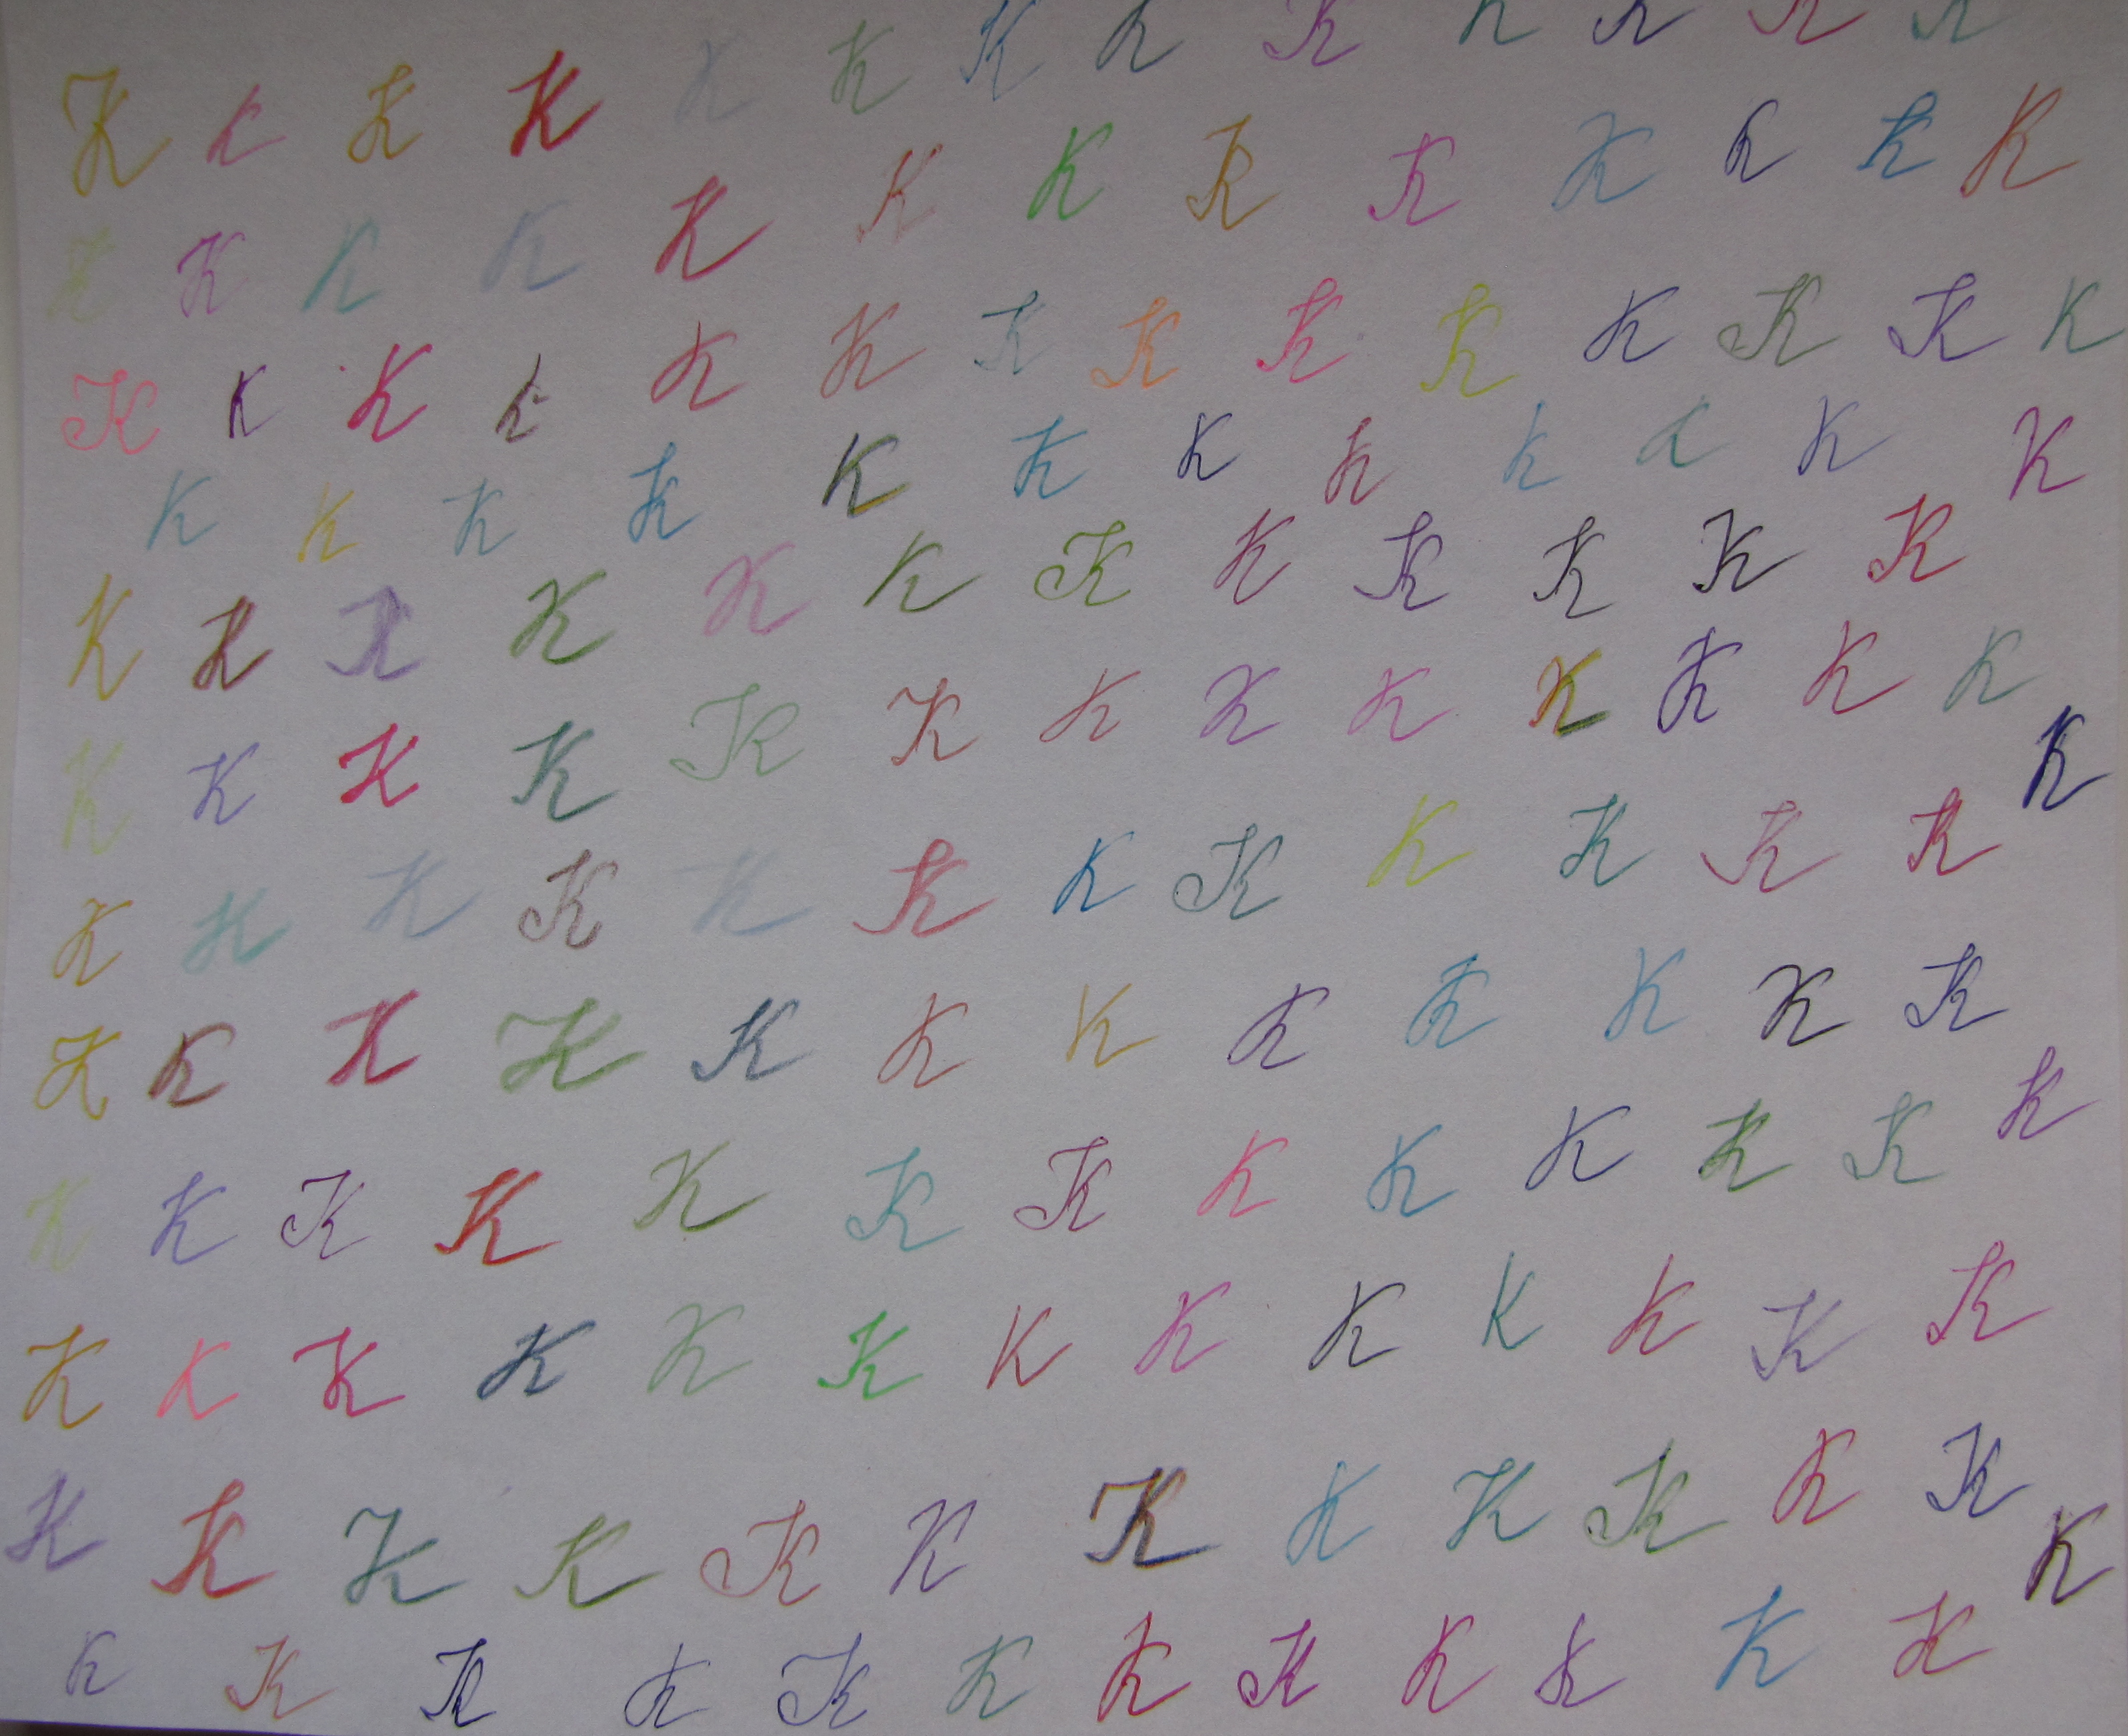 K K K K K K K K K K K K K
K K K K K K K K K K K K K
K K K K K K K K K K K K K K
K K K K K K K K K K K K
K K K K K K K K K K K K
K K K K K K K K K K K K K K
K K K K K K K K K K K K
K K K K K K K K K K K K
K K K K K K K K K K K K K
K K K K K K K K K K K K K
K K K K K K K K K K K K K
K K K K K K K K K K K K